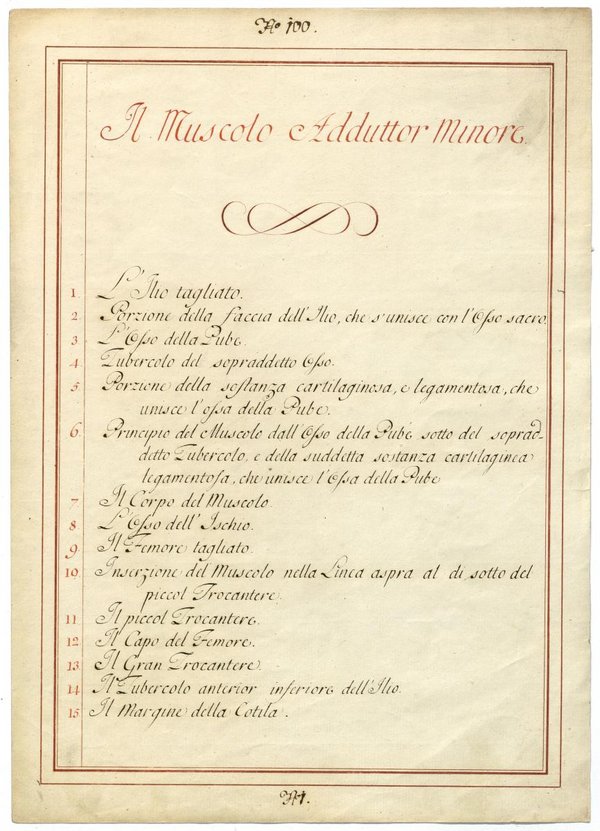 No 100.
Il Muscolo Adduttor Minore
1. L'Ilio tagliato.
2. Porzione della faccia dell'Ilio, che s'unisce con l'Osso sacro.
3. L'Osso della Pube.
4. Tubercolo del sopraddetto Osso.
5. Porzione della sostanza cartilaginosa, e legamentosa, che
unisce l'ossa della Pube.
6. Principio del Muscolo dall'Osso della Pube sotto del soprad-
detto Tubercolo, e della suddetta sostanza cartilaginea
legamentosa, che unisce l'Ossa della Pube
7. Il Corpo del Muscolo.
8. L'Osso dell'Ischio.
9. Il Femore tagliato.
10. Inserzione del Muscolo nella Linea aspra al di sotto del
piccol Trocantere.
11. Il piccol Trocantere.
12. Il Capo del Femore.
13. Il Gran Trocantere.
14. Il Tubercolo anterior inferiore dell'Ilio.
15. Il Margine della Cotila.